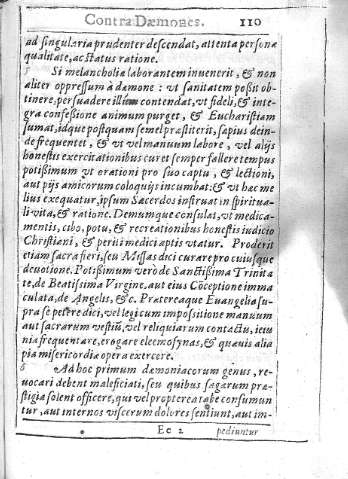 Contra Dæmones. 110
ad singularia prudenter descendat, attenta personæ
qualitate, ac status ratione.
5 Si melancholia laborantem invenerit, & non
aliter oppressum à dæmone: vt sanitatem poßit ob
tinere, persuadere illum contendat, vt fideli, & inte-
gra confeßione animum purget, & Euchariſtiam
sumat, idque postquam semel præstiterit, sæpius dein-
de frequentet, & vt vel manuum labore, vel alijs
honestis exercitationibus curet semper fallere tempus
potißimum vt orationi pro suo captu, & lectioni,
aut pijs amicorum colloquijs incumbat: & vt hæc me
lius exequatur, ipsum Sacerdos instruat in spiritua-
li vita, & ratione. Demumque consulat, vt medica-
mentis, cibo, potu, & recreationibus honestis iudicio
Christiani, & periti medici aptis vtatur. Proderit
etiam sacra fieri, seu Missas dici curare pro cuiusque
deuotione. Potißimum verò de Sanctißima Trinita
te, de Beatissima Virgine, aut eius Cōceptione imma
culata, de Angelis, &c. Prætereaque Euangelia su-
pra se petere dici, vel legi cum impositione manuum
aut sacrarum vestiũ, vel reliquiarum contactu, ieiu
nia frequentare, erogare eleemosynas, & quæuis alia
pia misericordiæ opera exercere.
6 Ad hoc primum dæmoniacorum genus, re-
uocari debent maleficiati, seu quibus sagarum præ-
stigia solent officere, qui vel propterea tabe consumun
tur, aut internos viscerum dolores sentiunt, aut im-
Ee 2 pediuntur